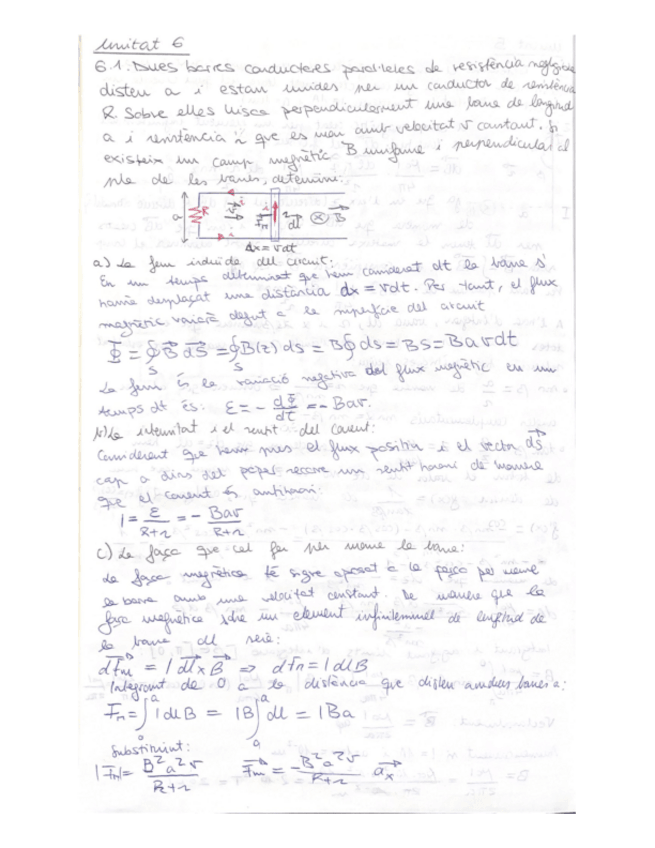 Unitat 6
6.1. Dues barres conductores paral·leles de resistència negligible
disten a i estan unides per un conductor de resistència
R. Sobre elles llisca perpendicularment una barra de longitud
a i resistència r que es mou amb velocitat v constant. Si
existeix un camp magnètic B uniforme i perpendicular al
pla de les barres, determineu:
a R i v⃗ F⃗m i 2 dl⃗ ⊗ B⃗
i
Δx = vdt
a) La fem induïda del circuit:
En un temps determinat que hem considerat dt la barra s'
haurà desplaçat una distància dx = vdt. Per tant, el flux
magnètic variarà degut a la superfície del circuit
Φ = ∮B⃗ dS⃗ = ∮B(z) ds = B∮ds = BS = Bavdt
S S
La fem és la variació negativa del flux magnètic en un
temps dt és: ε = - dΦ/dt = - Bav.
b) La intensitat i el sentit del corrent:
Considerant que hem pres el flux positiu i el vector ds⃗
cap a dins del paper recorre un sentit horari de manera
que el corrent és antihorari:
I = ε/(R+r) = - Bav/(R+r)
c) La força que cal fer per moure la barra:
La força magnètica té signe oposat a la força per moure
la barra amb una velocitat constant. De manera que la
força magnètica sobre un element infinitesimal de longitud de
la barra dl serà:
dF⃗m = I dl⃗ x B⃗ ⇒ dFm = I dl B
Integrant de 0 a la distància que disten ambdues barres a:
Fm = ∫₀ᵃ I dl B = IB ∫₀ᵃ dl = IBa
Substituint:
|Fm| = B²a²v/(R+r) F⃗m = -B²a²v/(R+r) a⃗x